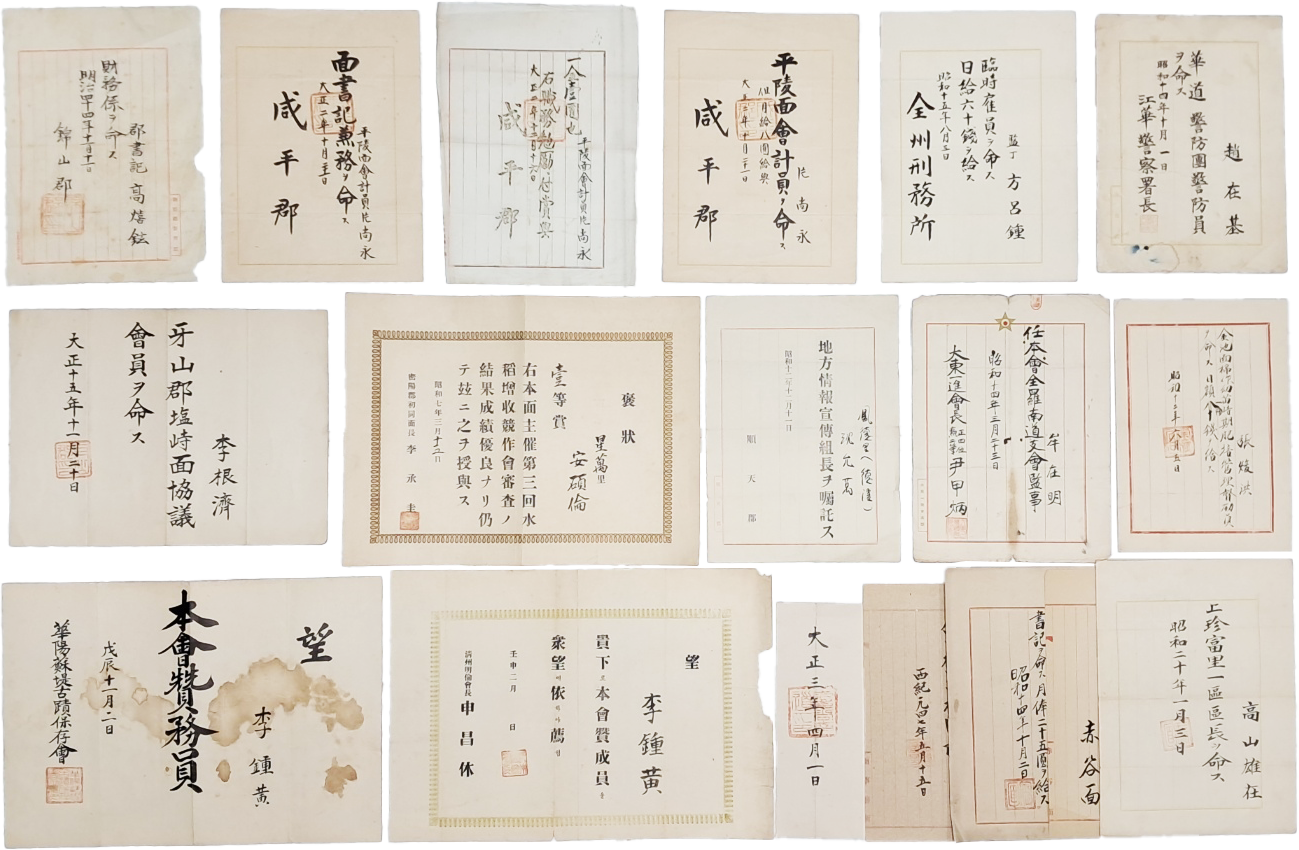 郡書記 高
財務係ヲ命ス
明治四十四年十二月十一日
錦山郡
平陵面會計員 片尚永
面書記兼務ヲ命ス
大正二年十月二十日
咸平郡
平陵面會計員 片尚永
一金壹圓也
右職務勉勵ニ付賞與
咸平郡
片尚永
平陵面會計員ヲ命ス
但月給八圓給與
咸平郡
監丁 方呂鍾
臨時雇員ヲ命ス
日給六十錢ヲ給ス
昭和十五年八月三日
全州刑務所
趙在基
華道警防團警防員
ヲ命ス
昭和十四年十月一日
江華警察署長
李根濟
牙山郡塩峙面協議
會員ヲ命ス
大正十五年十一月二十日
褒狀
星萬里
安碩倫
壹等賞
右本面主催第三回水
稻增收競作會審査ノ
結果成績優良ナリ仍
テ玆ニ之ヲ授與ス
昭和七年三月十五日
密陽郡初同面長 李承圭
地方情報宣傳組長ヲ嘱託ス
昭和十二年十二月十一日
順天郡
牟在明
任本會全羅南道支會監事
昭和十四年三月二十三日
大東一進會長 尹甲炳
張
ヲ命ス 日額八十錢ヲ給ス
昭和十三年六月五日
望
李鍾黃
本會贊務員
戊辰十一月二日
華陽蘇堤古蹟保存會
望
李鍾黃
員下로本會贊成員을
衆望에依하야薦함
壬申二月 日
清州明倫會長 申昌休
大正三年四月一日
西紀一九四七年五月十五日
書記ヲ命ス月俸二十五圓ヲ給ス
昭和十四年十月二日
赤谷面
高山雄在
上珍富里一區區長ヲ命ス
昭和二十年一月三日